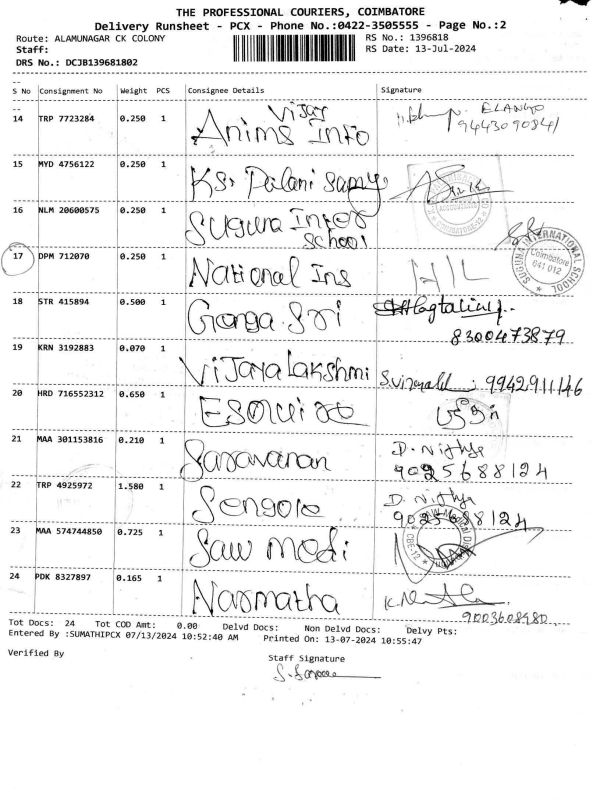 THE PROFESSIONAL COURIERS, COIMBATORE
Delivery Runsheet - PCX - Phone No.:0422-3505555 - Page No.:2
Route: ALAMUNAGAR CK COLONY RS No.: 1396818
Staff: RS Date: 13-Jul-2024
DRS No.: DCJB139681802
S No Consignment No Weight PCS Consignee Details Signature
14 TRP 7723284 0.250 1 Vijay Anims Info ELANGO
9443090841
15 MYD 4756122 0.250 1 Ks. Palani Samy
16 NLM 20600575 0.250 1 Suguna Inter
School
SUGUNA INTERNATIONAL SCHOOL Coimbatore 641 012
17 DPM 712070 0.250 1 National Ins
18 STR 415894 0.500 1 Ganga Sri
8300473879
19 KRN 3192883 0.070 1 Vijaya Lakshmi 9942911146
20 HRD 716552312 0.650 1
21 MAA 301153816 0.210 1 Saravanan D. Nithya
9025688124
22 TRP 4925972 1.580 1 D. Nithya
9025688124
23 MAA 574744850 0.725 1 Saw medi CBE-12
24 PDK 8327897 0.165 1 Narmatha
Tot Docs: 24 Tot COD Amt: 0.00 Delvd Docs: Non Delvd Docs: Delvy Pts:
Entered By :SUMATHIPCX 07/13/2024 10:52:40 AM Printed On: 13-07-2024 10:55:47
Verified By Staff Signature